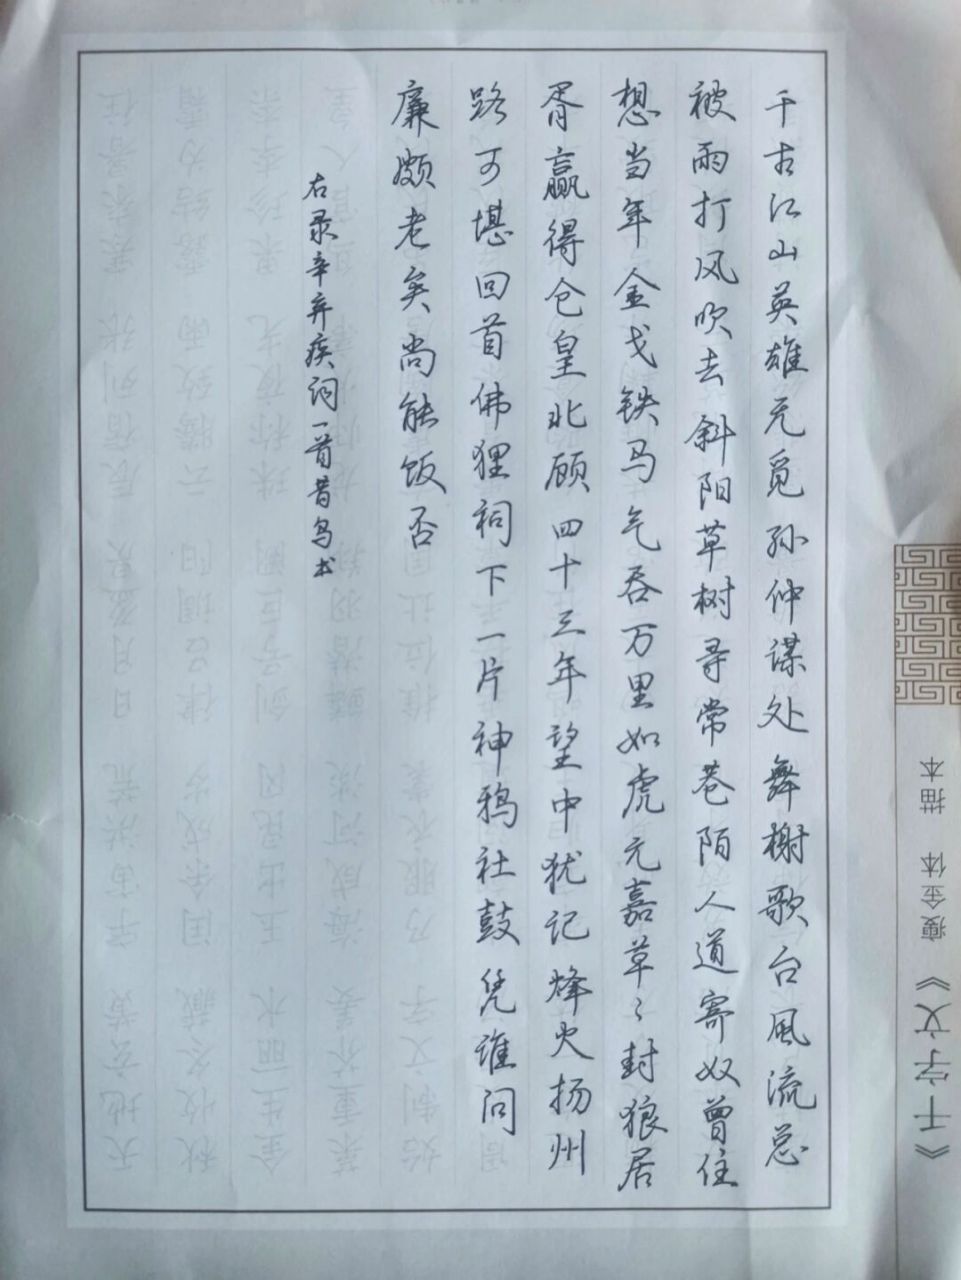 千古江山英雄无觅孙仲谋处舞榭歌台風流总
被雨打风吹去斜阳草树寻常巷陌人道寄奴曾住
想当年金戈铁马气吞万里如虎元嘉草々封狼居
胥赢得仓皇北顾四十三年望中犹记烽火扬州
路可堪回首佛狸祠下一片神鸦社鼓凭谁问
廉颇老矣尚能饭否
右录辛弃疾词一首昔鸟书
《千字文》 瘦金体 描本